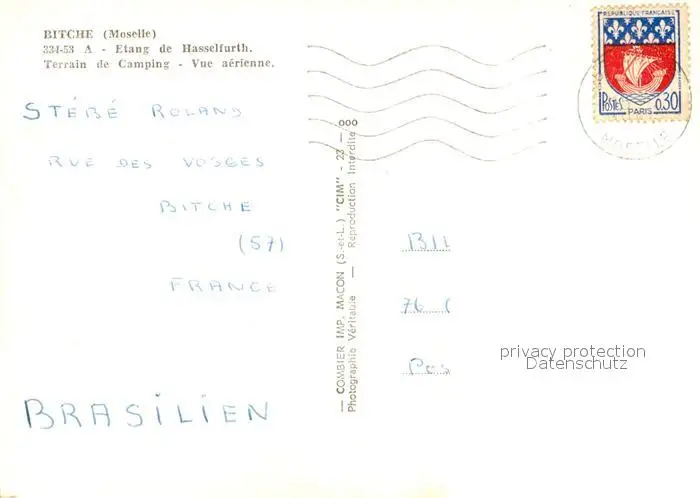 BITCHE (Moselle)
334-53 A - Etang de Hasselfurth.
Terrain de Camping - Vue aérienne.
REPUBLIQUE FRANÇAISE
POSTES 0,30
PARIS
MOSELLE
STÉBÉ ROLAND
RUE DES VOSGES
BITCHE
(57)
FRANCE
BRASILIEN
— COMBIER IMP. MACON (S.-et-L.) "CIM" - 23 — 000
Photographie Véritable — Reproduction Interdite
76
privacy protection
Datenschutz